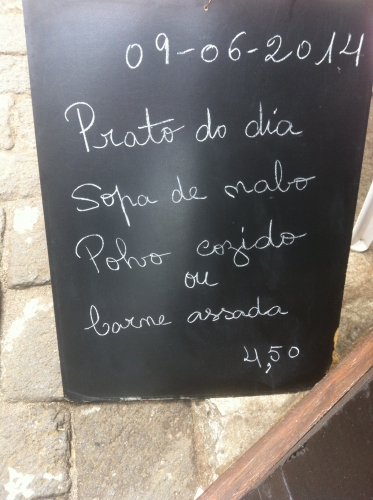 09-06-2014
Prato do dia
Sopa de nabo
Polvo cozido
ou
Carne assada
4,50